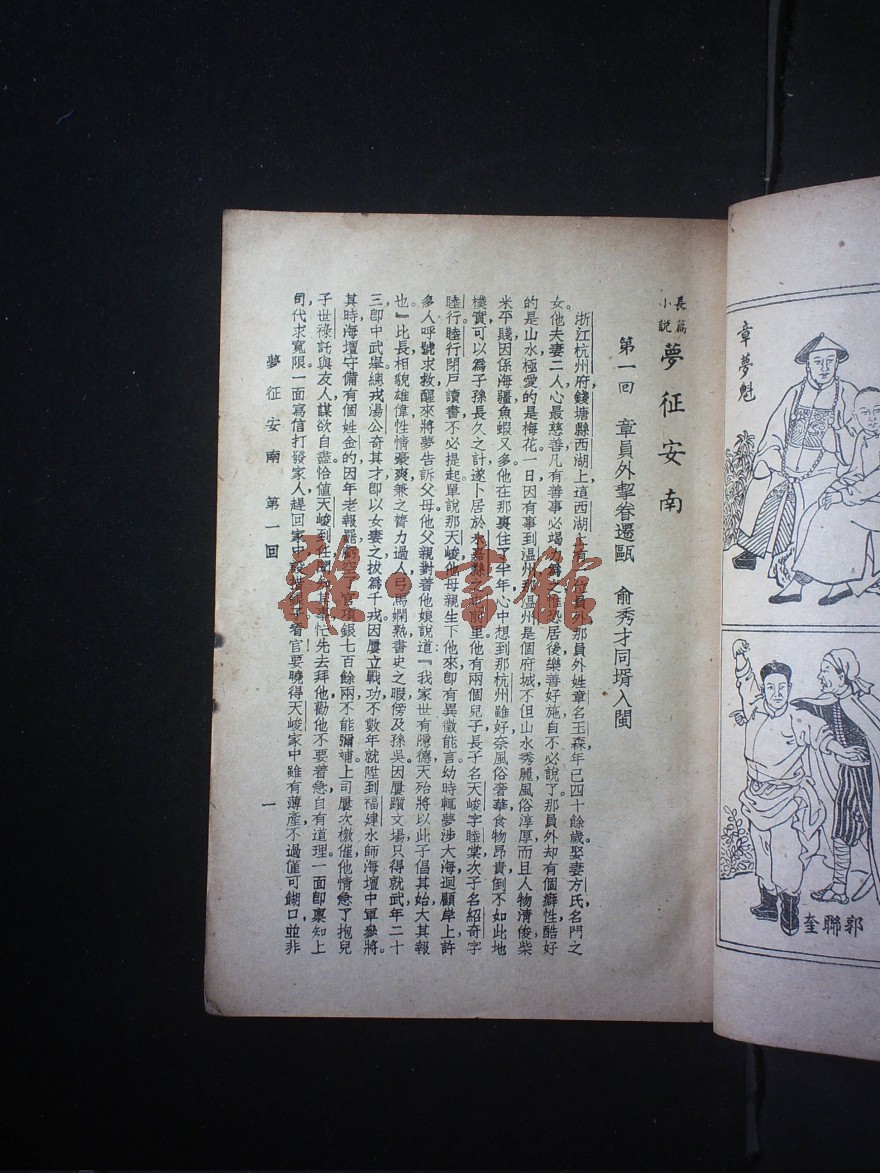 章夢魁
郭聯奎
長篇
小說
夢征安南
第一回 章員外挈眷遷甌 俞秀才同壻入閩
浙江杭州府錢塘縣西湖上這西湖上有一位員外那員外姓章名玉森年已四十餘歲娶妻方氏名門之
女他夫妻二人心最慈善凡有善事必竭力為之惟恐居後樂善好施自不必說了那員外却有個癖性酷好
的是山水極愛的是梅花一日因有事到溫州那溫州是個府城不但山水秀麗風俗淳厚而且人物清俊柴
米平賤因係海疆魚蝦又多他在那裏住了半年心中想到那杭州雖好奈風俗奢華食物昂貴倒不如此地
樸實可以為子孫長久之計遂卜居於永嘉縣之前里他有兩個兒子長子名天峻字睦棠次子名紹奇字
睦行睦行閉戶讀書不必提起單說那天峻他母親生下他來卽有異徵能言幼時輒夢涉大海迴顧岸上許
多人呼號求救醒來將夢告訴父母他父親對着他娘說道『我家世有隱德天殆將以此子倡其始大其報
也』比長相貌雄偉性情豪爽兼之膂力過人弓馬嫻熟書史之暇傍及孫吳因屢躓文場只得就武年二十
三卽中武舉總戎湯公奇其才卽以女妻之拔為千戎因屢立戰功不數年就陞到福建水師海壇中軍參將。
其時海壇守備有個姓金的因年老報罷虧空官項銀七百餘兩不能彌補上司屢次檄催他情急了抱兒
子世祿託與友人謀欲自盡恰值天峻到任聞知其事忙先去拜他勸他不要着急自有道理。一面卽稟知上
司代求寬限一面寫信打發家人趕回家中設措銀子看官要曉得天峻家中雖有薄產不過僅可餬口並非
夢征安南 第一回
一
雅心書館